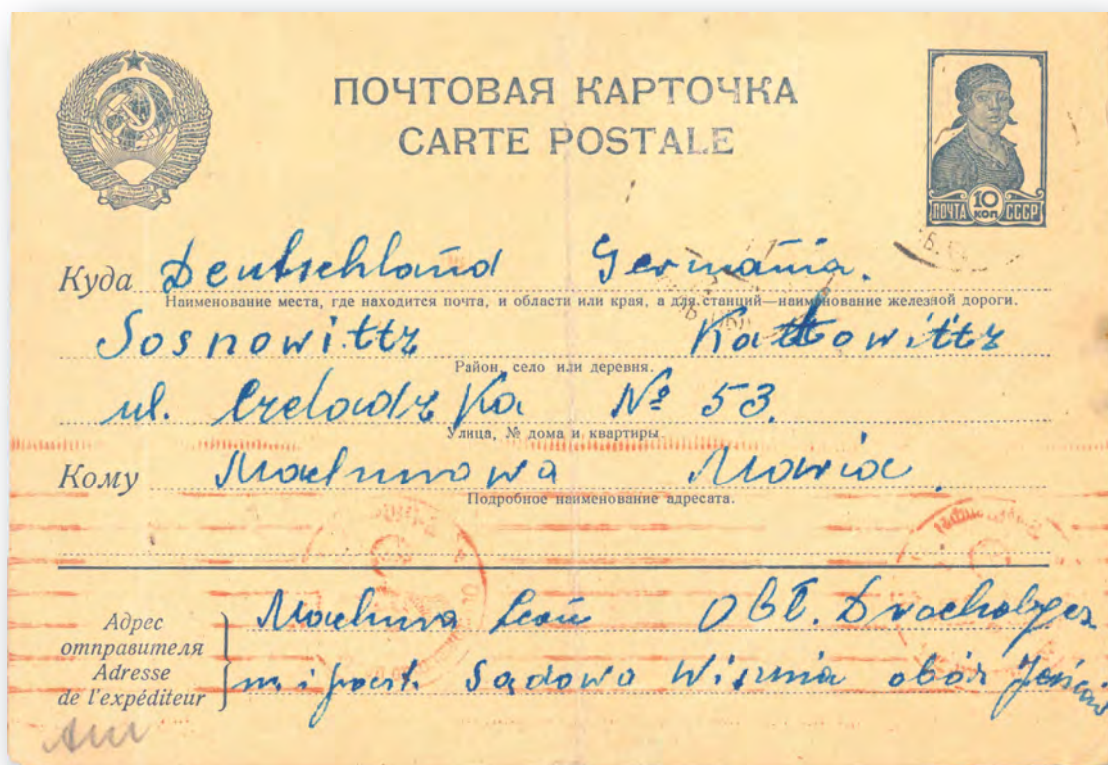 ПОЧТОВАЯ КАРТОЧКА
CARTE POSTALE
ПОЧТА 10 КОП СССР
Куда Deutschland Germania.
Наименование места, где находится почта, и области или края, а для станций—наименование железной дороги.
Sosnowittz Kattowittz
Район, село или деревня.
ul. Czeladzka № 53.
Улица, № дома и квартиры.
Кому Machnowa Maria.
Подробное наименование адресата.
Адрес
отправителя
Adresse
de l'expéditeur
Machura Leon Obł.
m i poczt. Sądowa Wisznia obóz